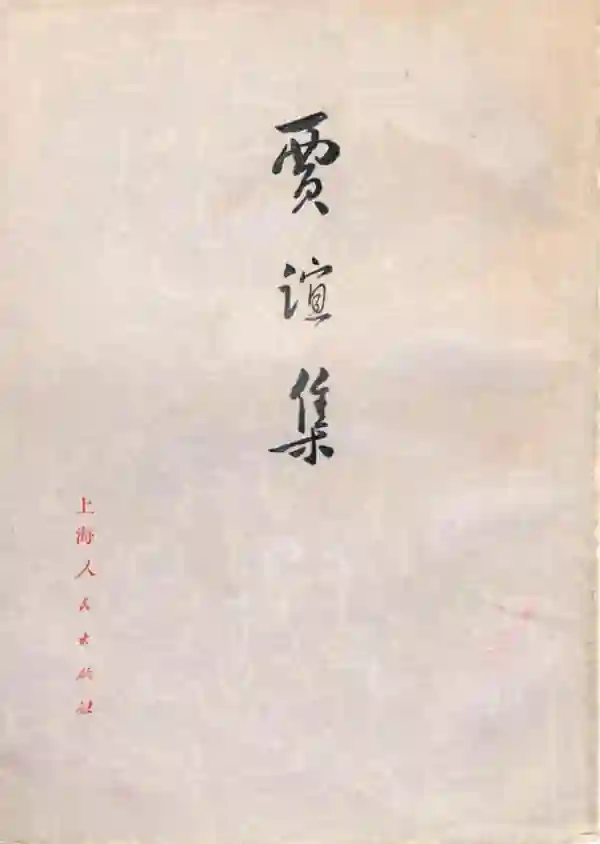 贾谊集
上海人民出版社